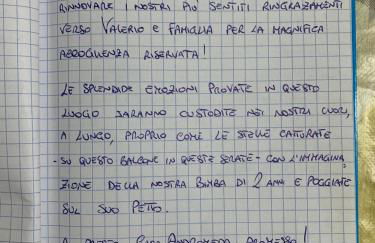 RINNOVARE I NOSTRI PIÙ SENTITI RINGRAZIAMENTI
VERSO VALERIO E FAMIGLIA PER LA MAGNIFICA
ACCOGLIENZA RISERVATA!
LE SPLENDIDE EMOZIONI PROVATE IN QUESTO
LUOGO SARANNO CUSTODITE NEI NOSTRI CUORI,
A LUNGO, PROPRIO COME LE STELLE CATTURATE
- SU QUESTO BALCONE IN QUESTE SERATE - CON L'IMMAGINA
ZIONE DELLA NOSTRA BIMBA DI 2 ANNI E POGGIATE
SUL SUO PETTO.